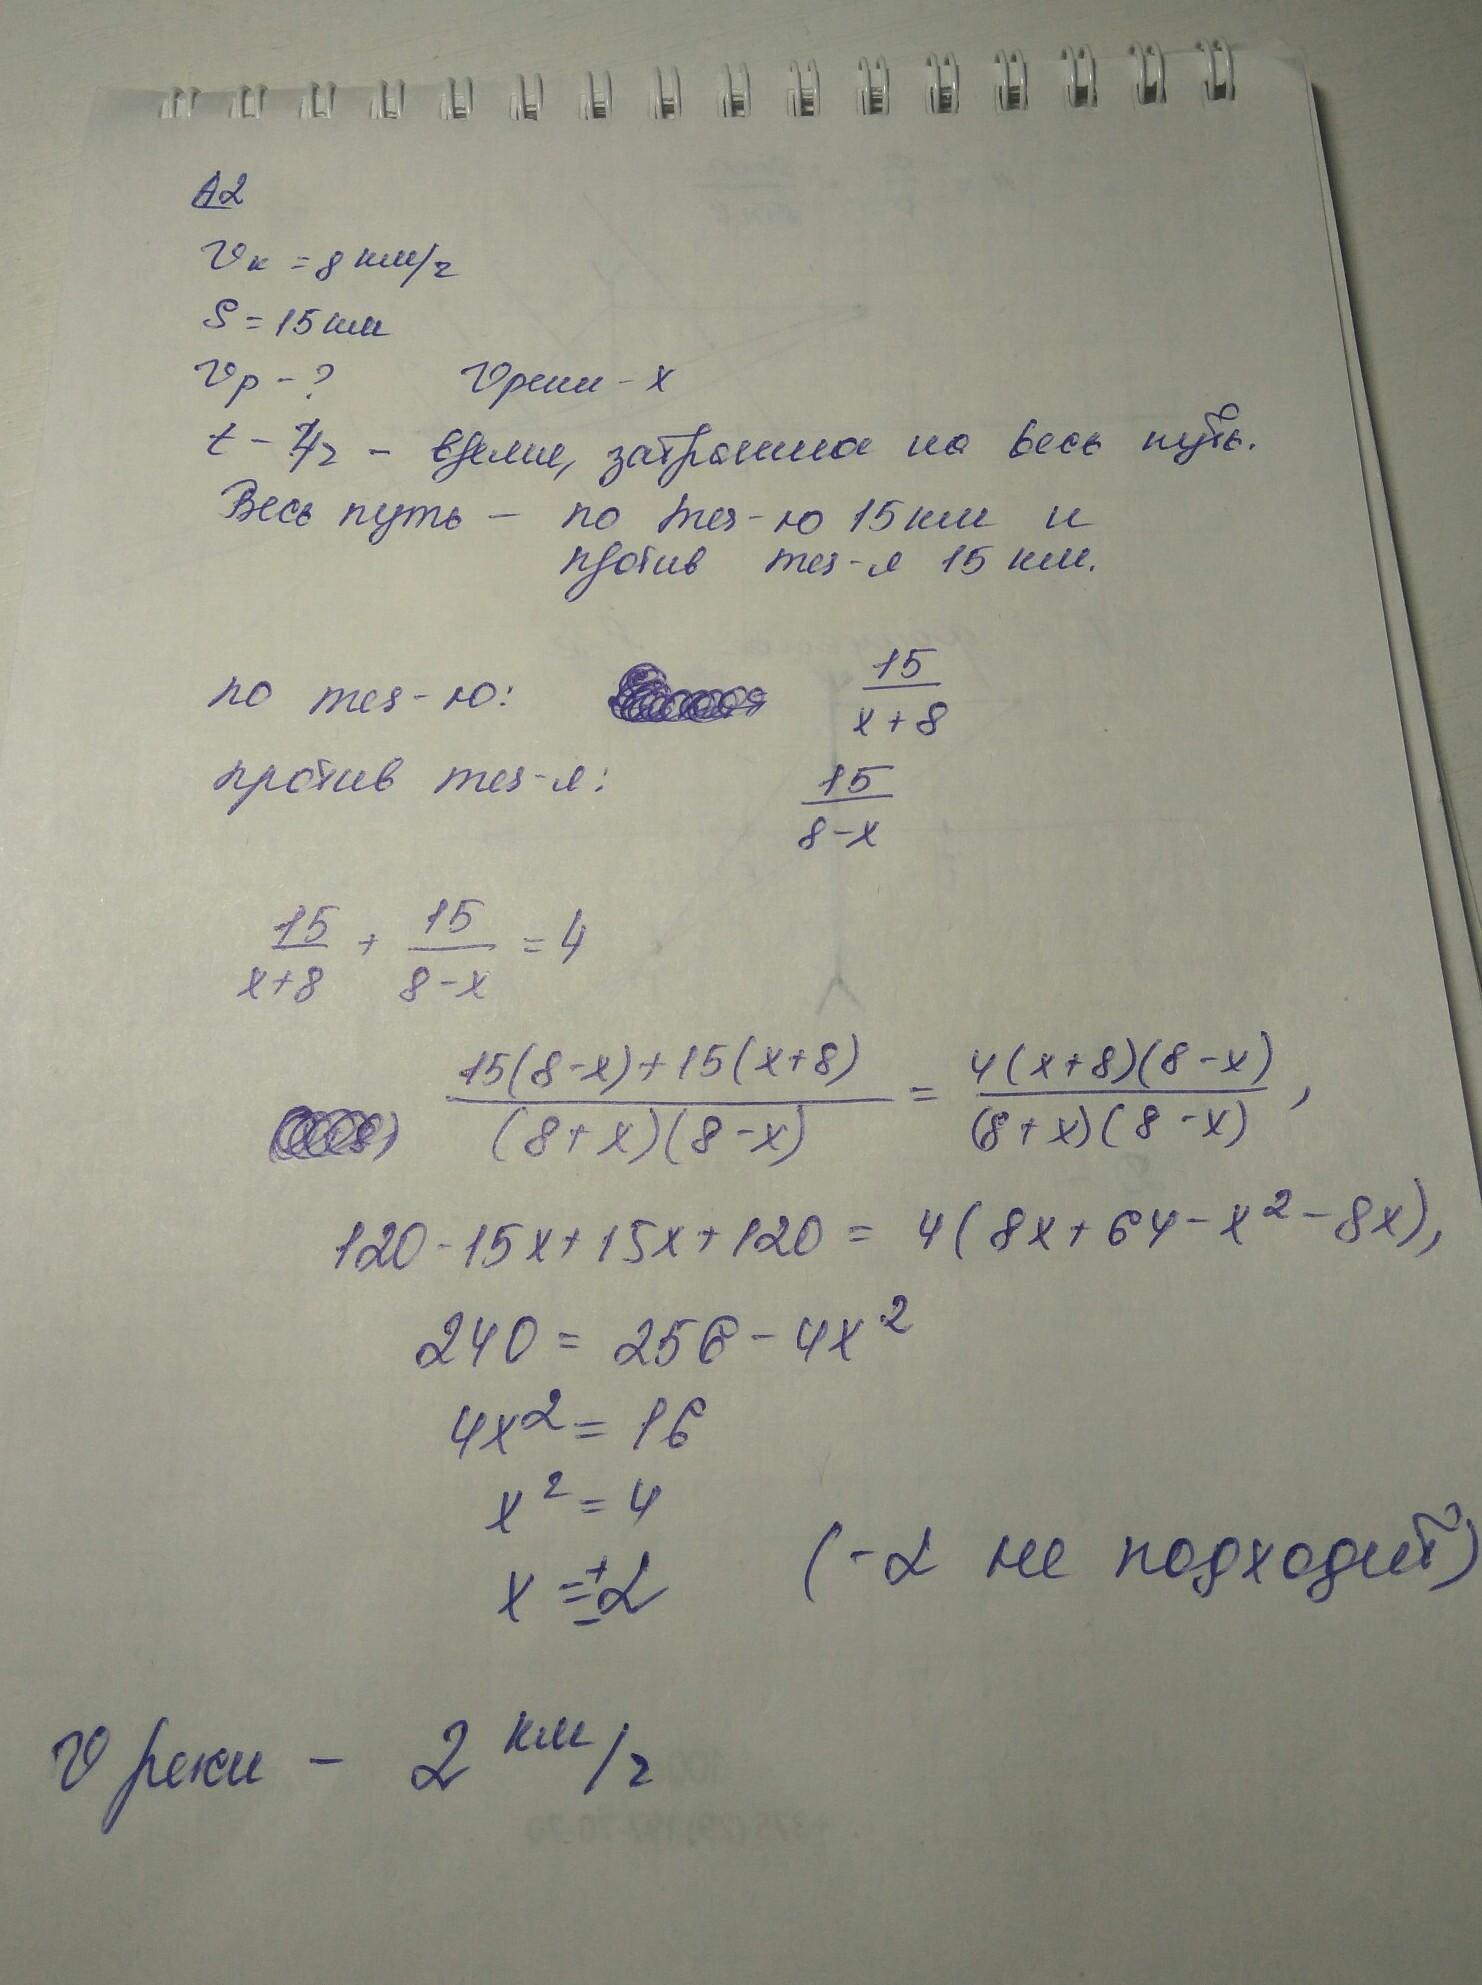 A2
Vк = 8 км/ч
S = 15 км
Vр - ? Vреки - x
t - 4ч - время, на весь путь.
Весь путь - по теч-ю 15 км и
против теч-я 15 км.
по теч-ю: 15/(x+8)
против теч-я: 15/(8-x)
15/(x+8) + 15/(8-x) = 4
(15(8-x)+15(x+8))/((8+x)(8-x)) = (4(x+8)(8-x))/((8+x)(8-x)),
120-15x+15x+120 = 4(8x+64-x²-8x),
240 = 256 - 4x²
4x² = 16
x² = 4
x = ±2 (-2 не подходит)
V реки - 2 км/ч